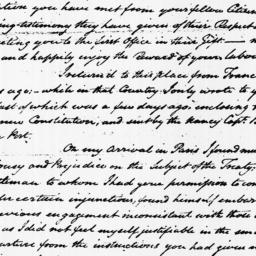 ation you have met from your fellow Citizens
ing testimony they have given of their Respect
cting you to the first Office in their Gift —
and happily enjoy the Reward of your labou
I returned to this place from France
s ago: — while in that Country I only wrote to y
ast of which was a few days ago: enclosing
new Constitution, and sent by the Nancy Capt.
Port.
On my arrival in Paris I found mu
ousy and Prejudice on the Subject of the Treaty
tleman to whom I had given permission to co
der certain injunctions, found himself embar
previous engagement inconsistent with those
as I did not feel myself justifiable in the sm
arture from the instructions you had given